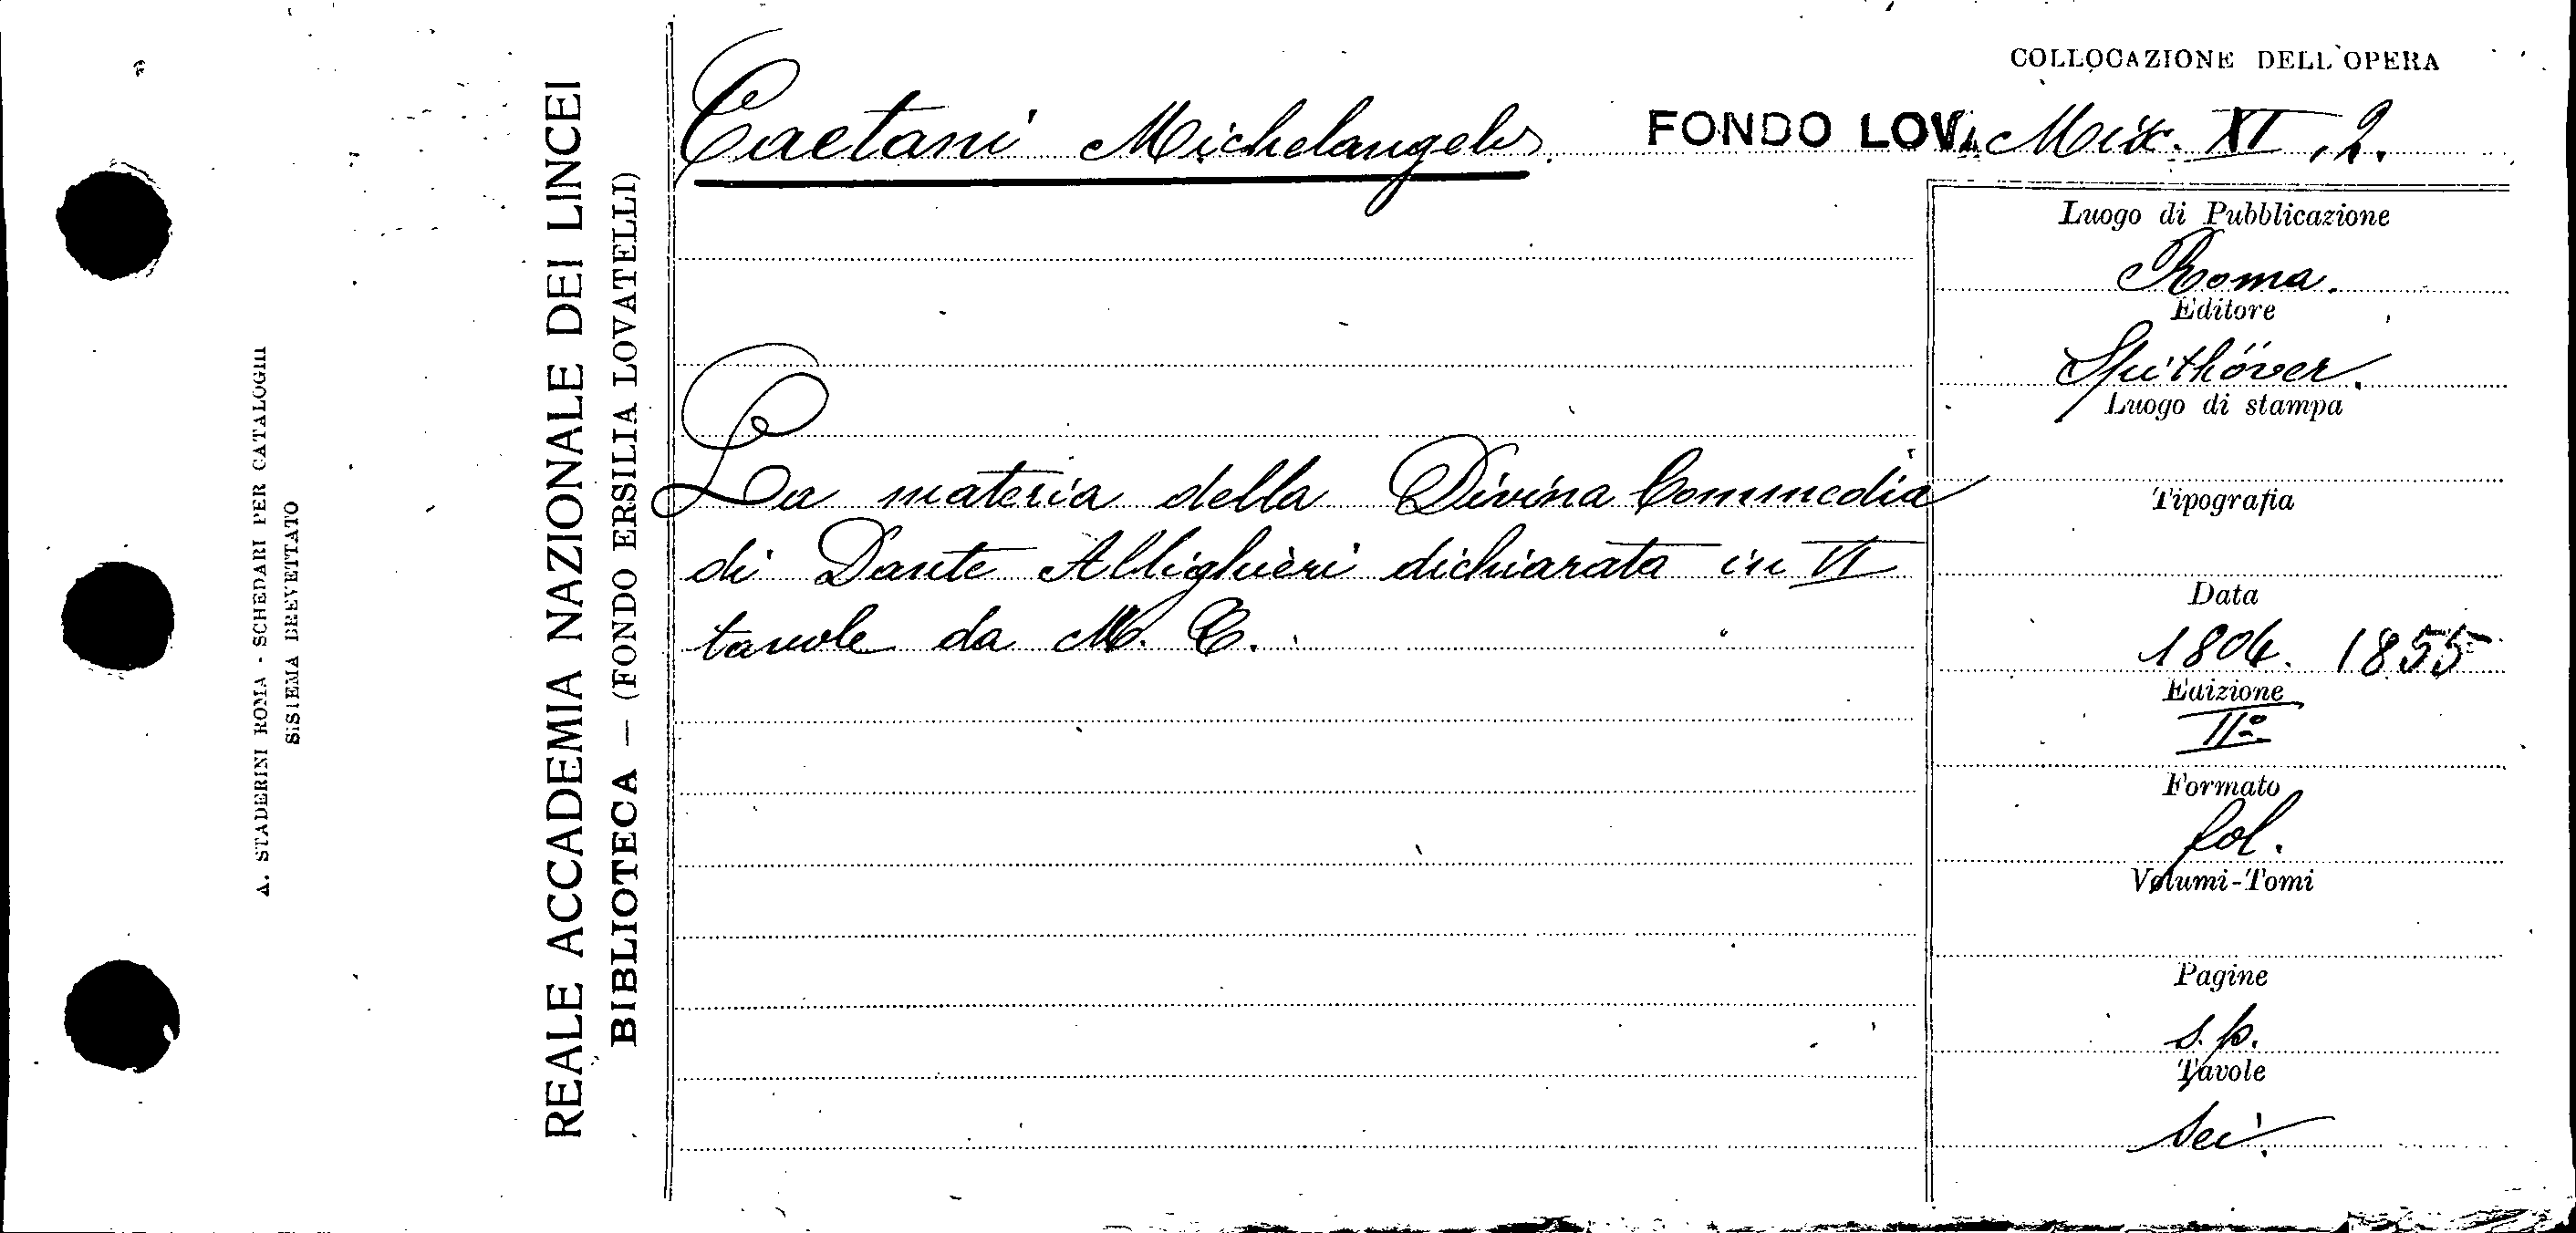 COLLOCAZIONE DELL'OPERA
Caetani Michelangelo.
FONDO LOV. Misc. XI, 2.
La materia della Divina Commedia
di Dante Allighieri dichiarata in VI
tavole da M. C.
Luogo di Pubblicazione
Roma.
Editore
Spithöver.
Luogo di stampa
Tipografia
Data
1804. 1855
Edizione
IIª
Formato
fol.
Volumi-Tomi
Pagine
s. p.
Tavole
sei.
REALE ACCADEMIA NAZIONALE DEI LINCEI
BIBLIOTECA — (FONDO ERSILIA LOVATELLI)
A. STADERINI ROMA - SCHEDARI PER CATALOGHI
SISTEMA BREVETTATO